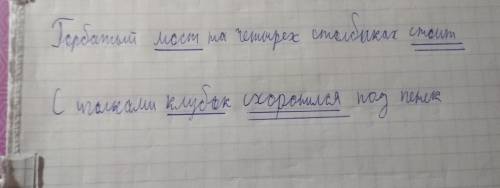 Горбатый мост на четырех столбиках стоит
С иголками клубок схоронился под пенек